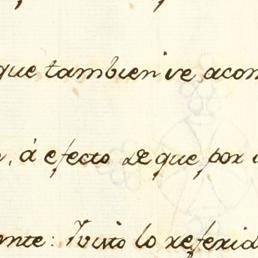 que tambien ve acom
, á efecto de que por
ente: Visto lo referid